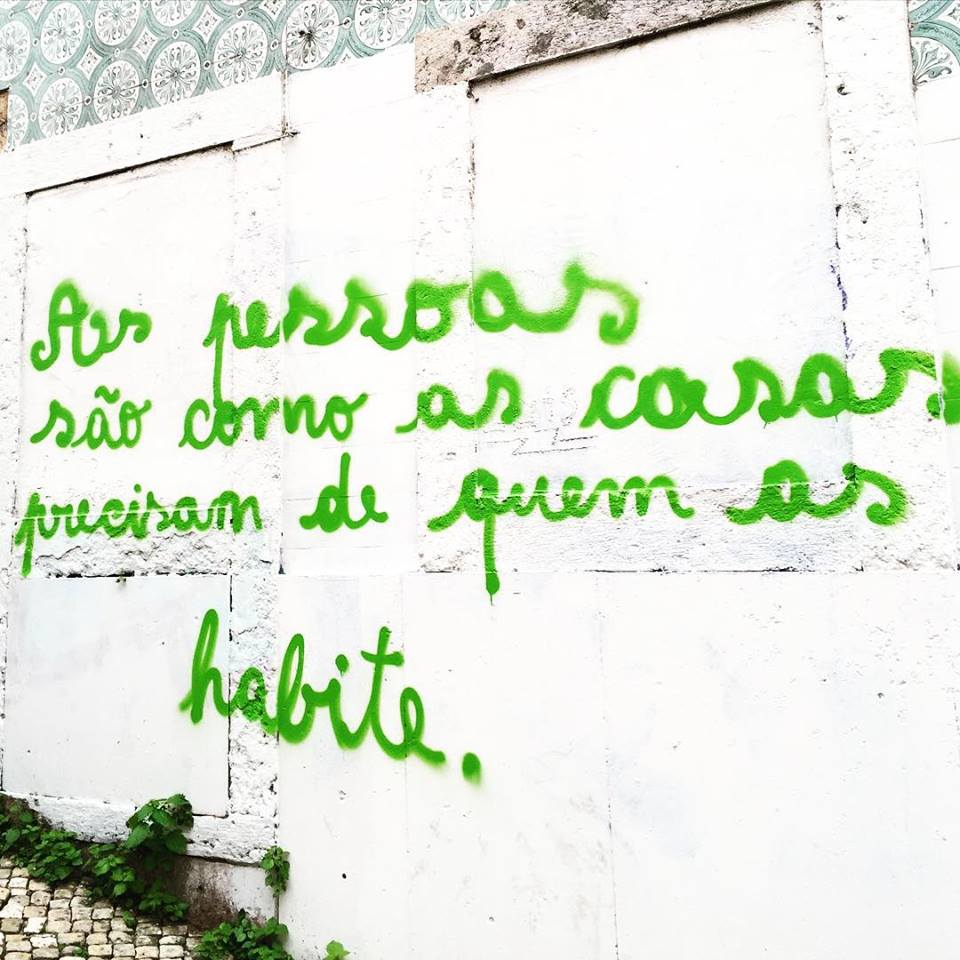 As pessoas
são como as casas
precisam de quem as
habite.